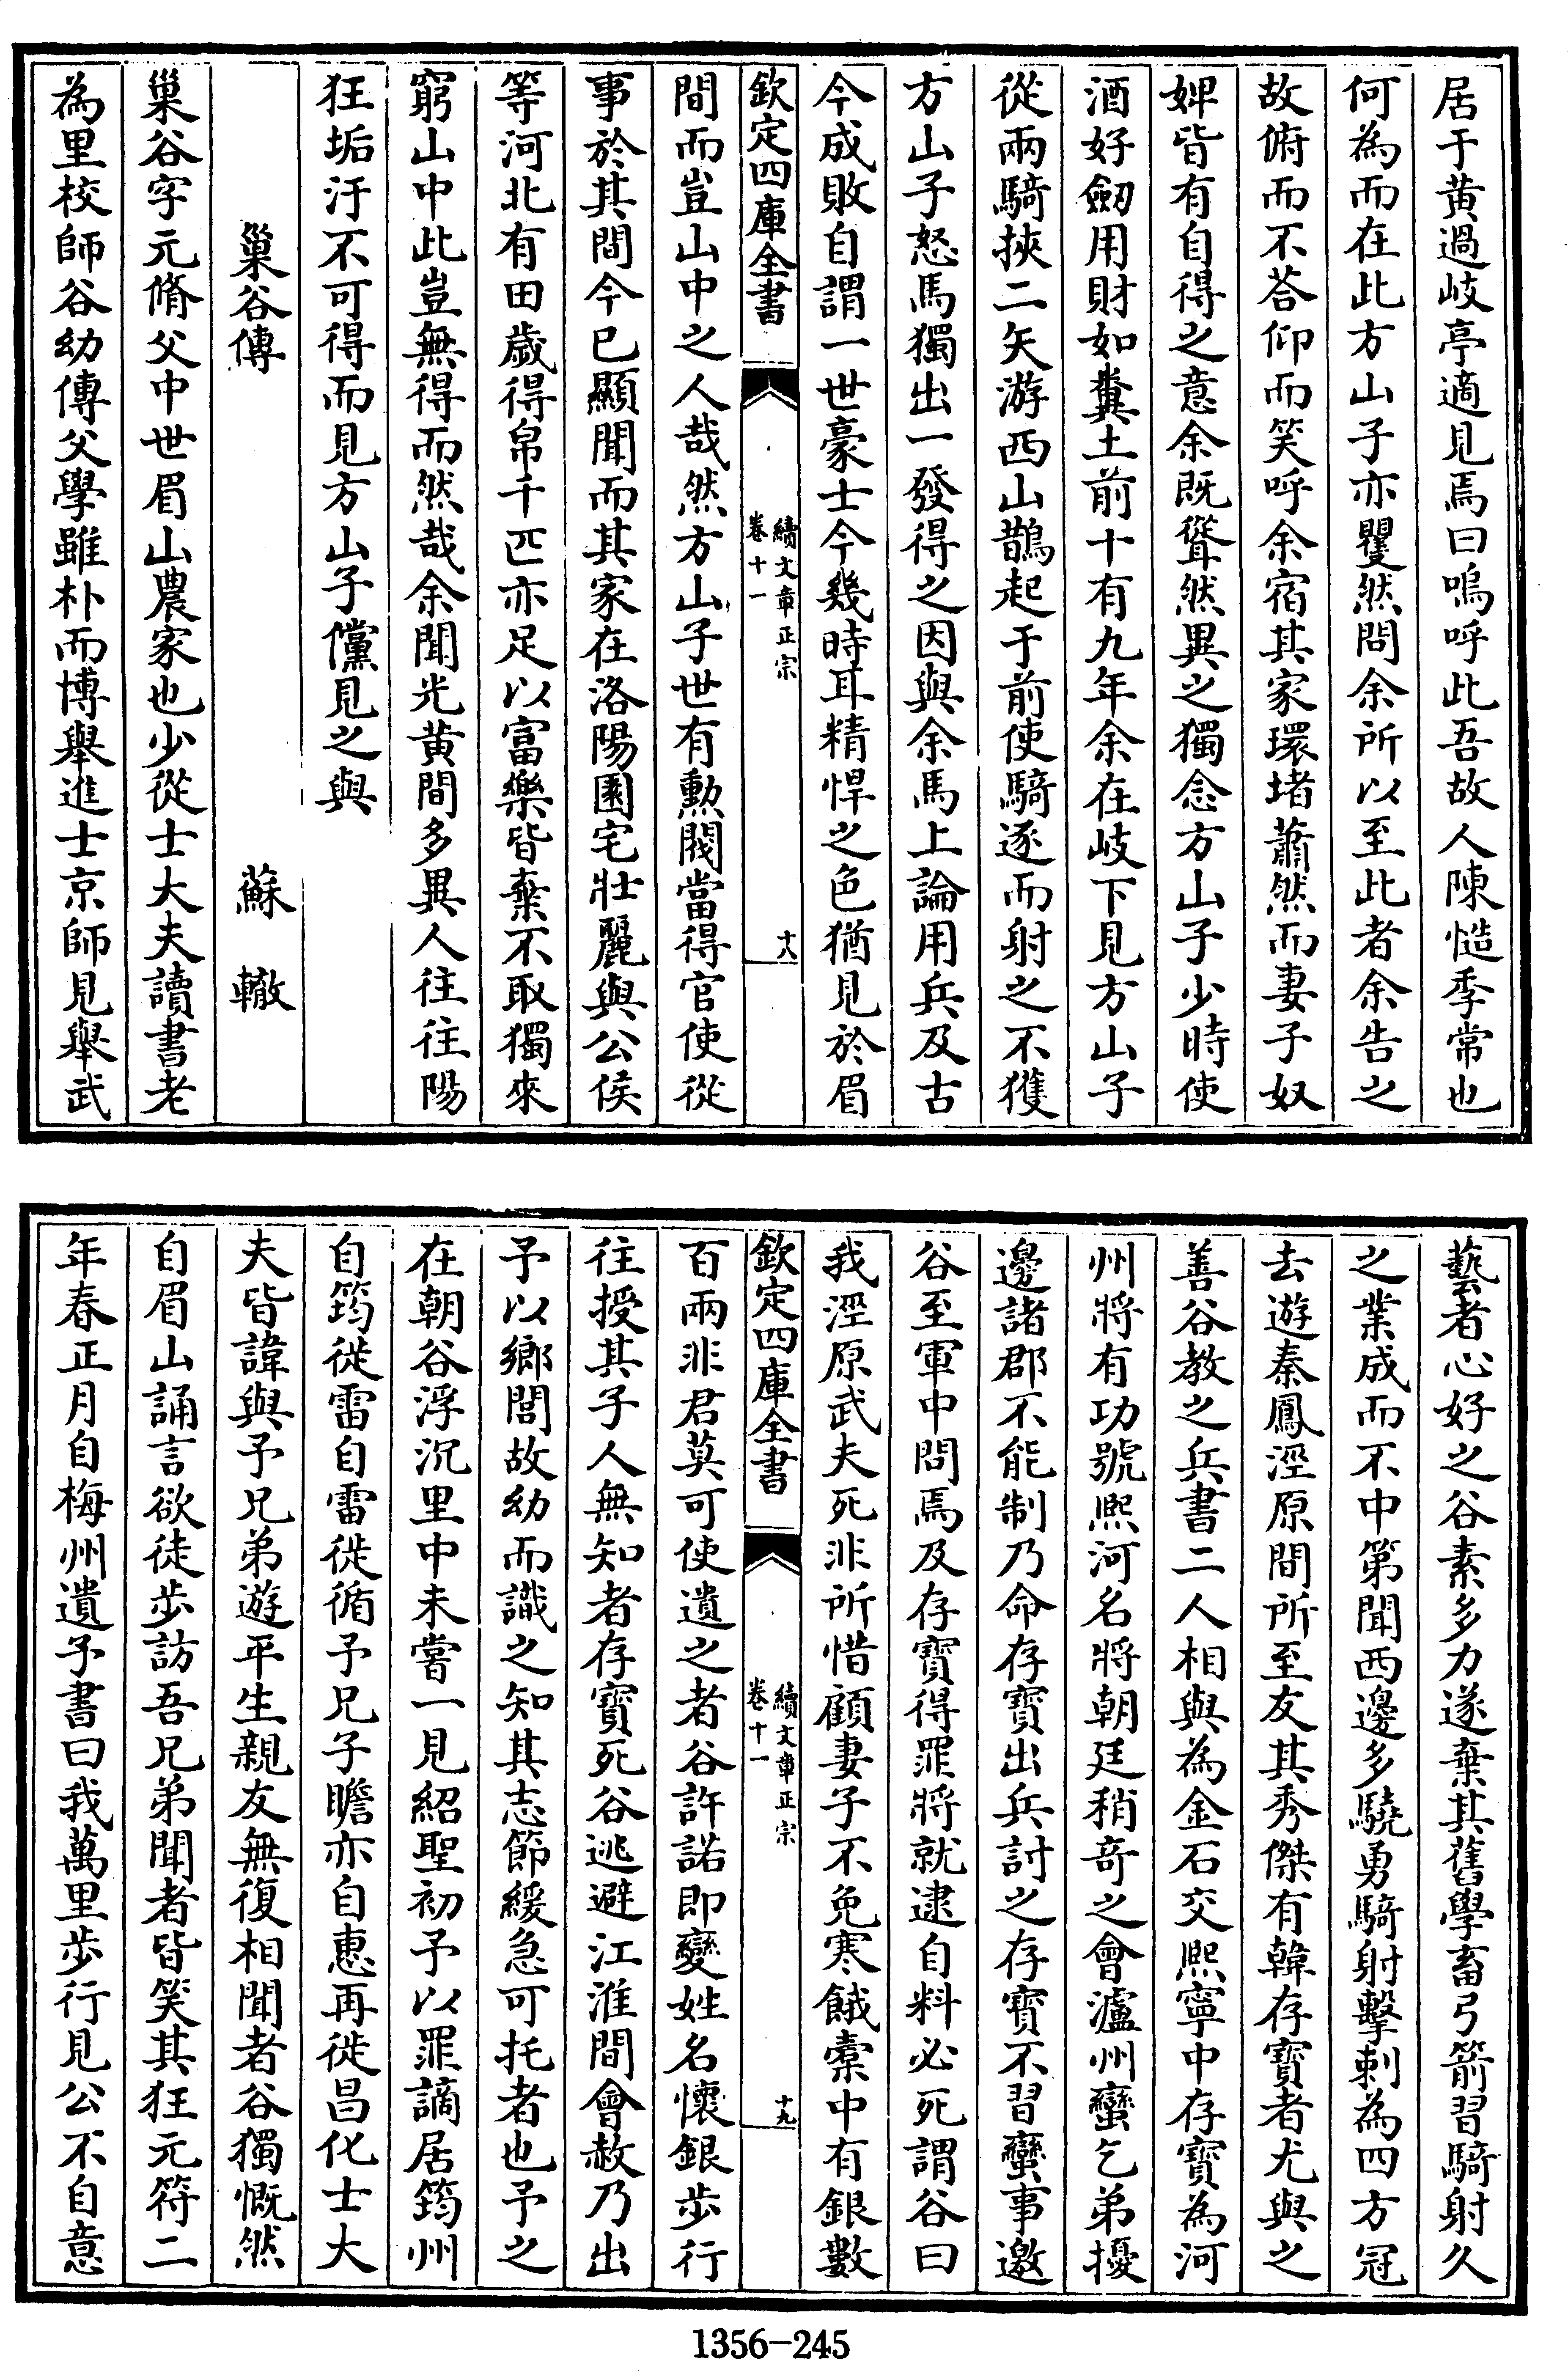 居于黄過岐亭適見焉曰嗚呼此吾故人陳慥季常也
何為而在此方山子亦矍然問余所以至此者余告之
故俯而不荅仰而笑呼余宿其家環堵蕭然而妻子奴
婢皆有自得之意余既聳然異之獨念方山子少時使
酒好劔用財如糞土前十有九年余在岐下見方山子
從兩騎挾二矢游西山鵲起于前使騎逐而射之不獲
方山子怒馬獨出一發得之因與余馬上論用兵及古
今成敗自謂一世豪士今幾時耳精悍之色猶見於眉
欽定四庫全書
續文章正宗
卷十一
十八
間而豈山中之人哉然方山子世有勲閥當得官使從
事於其間今已顯聞而其家在洛陽園宅壯麗與公侯
等河北有田歲得帛千匹亦足以富樂皆棄不取獨來
窮山中此豈無得而然哉余聞光黄間多異人往往陽
狂垢汙不可得而見方山子儻見之與
巢谷傳 蘇轍
巢谷字元脩父中世眉山農家也少從士大夫讀書老
為里校師谷幼傳父學雖朴而博舉進士京師見舉武
藝者心好之谷素多力遂棄其舊學畜弓箭習騎射久
之業成而不中第聞西邊多驍勇騎射擊刺為四方冠
去遊秦鳳涇原間所至友其秀傑有韓存寶者尤與之
善谷教之兵書二人相與為金石交熙寧中存寶為河
州將有功號熙河名將朝廷稍奇之會瀘州蠻乞弟擾
邊諸郡不能制乃命存寶出兵討之存寶不習蠻事邀
谷至軍中問焉及存寶得罪將就逮自料必死謂谷曰
我涇原武夫死非所惜顧妻子不免寒餓橐中有銀數
欽定四庫全書
續文章正宗
卷十一
十九
百兩非君莫可使遺之者谷許諾即變姓名懷銀步行
往授其子人無知者存寶死谷逃避江淮間會赦乃出
予以鄉閭故幼而識之知其志節緩急可托者也予之
在朝谷浮沉里中未嘗一見紹聖初予以罪謫居筠州
自筠徙雷自雷徙循予兄子瞻亦自惠再徙昌化士大
夫皆諱與予兄弟遊平生親友無復相聞者谷獨慨然
自眉山誦言欲徒步訪吾兄弟聞者皆笑其狂元符二
年春正月自梅州遺予書曰我萬里步行見公不自意
1356-245